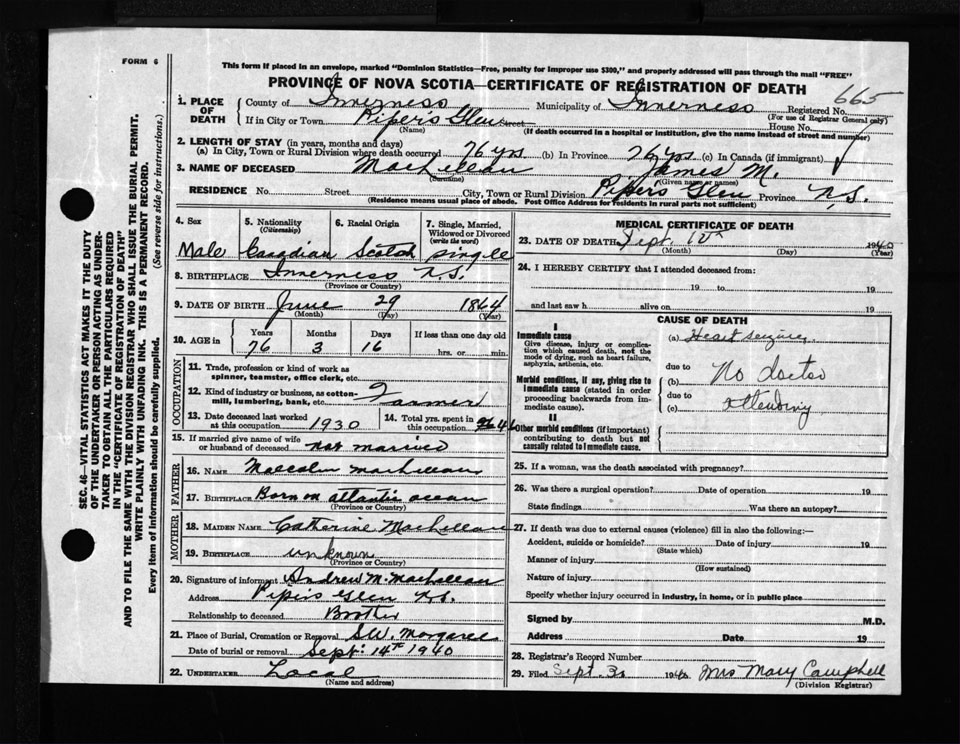 FORM 6
This form if placed in an envelope, marked "Dominion Statistics—Free, penalty for improper use $300," and properly addressed will pass through the mail "FREE"
PROVINCE OF NOVA SCOTIA—CERTIFICATE OF REGISTRATION OF DEATH
1. PLACE OF DEATH
County of Inverness Municipality of Inverness Registered No. 665
(For use of Registrar General only)
If in City or Town Pipers Glen Street House No.
(Name) (If death occurred in a hospital or institution, give the name instead of street and number)
2. LENGTH OF STAY (in years, months and days)
(a) In City, Town or Rural Division where death occurred 76 yrs. (b) In Province 76 yrs (c) In Canada (if immigrant)
3. NAME OF DECEASED MacLellan James M.
(Surname) (Given name or names)
RESIDENCE No. Street City, Town or Rural Division Piper's Glen Province N.S.
(Residence means usual place of abode. Post Office Address for residents in rural parts not sufficient)
4. Sex 5. Nationality (Citizenship) 6. Racial Origin 7. Single, Married, Widowed or Divorced (write the word)
Male Canadian Scotch single
8. BIRTHPLACE Inverness N.S.
(Province or Country)
9. DATE OF BIRTH June 29 1864
(Month) (Day) (Year)
10. AGE in Years Months Days If less than one day old
76 3 16 hrs. or min.
OCCUPATION
11. Trade, profession or kind of work as spinner, teamster, office clerk, etc.
12. Kind of industry or business, as cotton-mill, lumbering, bank, etc. Farmer
13. Date deceased last worked at this occupation 1930
14. Total yrs. spent in this occupation
15. If married give name of wife or husband of deceased not married
FATHER
16. NAME Malcolm MacLellan
17. BIRTHPLACE Born on atlantic ocean
(Province or Country)
MOTHER
18. MAIDEN NAME Catherine MacLellan
19. BIRTHPLACE unknown
(Province or Country)
20. Signature of informant Andrew M. MacLellan
Address Pipers Glen N.S.
Relationship to deceased Brother
21. Place of Burial, Cremation or Removal S.W. Margaree
Date of burial or removal Sept: 14th 1940
22. UNDERTAKER Local
(Name and address)
MEDICAL CERTIFICATE OF DEATH
23. DATE OF DEATH Sept. 1940
(Month) (Day) (Year)
24. I HEREBY CERTIFY that I attended deceased from:
19 to 19
and last saw h alive on 19
CAUSE OF DEATH
I
Immediate cause
Give disease, injury or complication which caused death, not the mode of dying, such as heart failure, asphyxia, asthenia, etc.
(a) Heart seizure
due to
Morbid conditions, if any, giving rise to immediate cause (stated in order proceeding backwards from immediate cause).
(b) No doctor
due to
(c) attending
II
Other morbid conditions (if important) contributing to death but not causally related to immediate cause.
25. If a woman, was the death associated with pregnancy?
26. Was there a surgical operation? Date of operation 19
State findings Was there an autopsy?
27. If death was due to external causes (violence) fill in also the following:—
Accident, suicide or homicide? Date of injury 19
(State which)
Manner of injury
(How sustained)
Nature of injury
Specify whether injury occurred in industry, in home, or in public place
Signed by M.D.
Address Date 19
28. Registrar's Record Number
29. Filed Sept. 30 1940 Mrs Mary Campbell
(Division Registrar)
SEC. 46—VITAL STATISTICS ACT MAKES IT THE DUTY
OF THE UNDERTAKER OR PERSON ACTING AS UNDER-
TAKER TO OBTAIN ALL THE PARTICULARS REQUIRED
IN THE "CERTIFICATE OF REGISTRATION OF DEATH"
AND TO FILE THE SAME WITH THE DIVISION REGISTRAR WHO SHALL ISSUE THE BURIAL PERMIT.
WRITE PLAINLY WITH UNFADING INK. THIS IS A PERMANENT RECORD.
Every item of information should be carefully supplied. (See reverse side for instructions.)